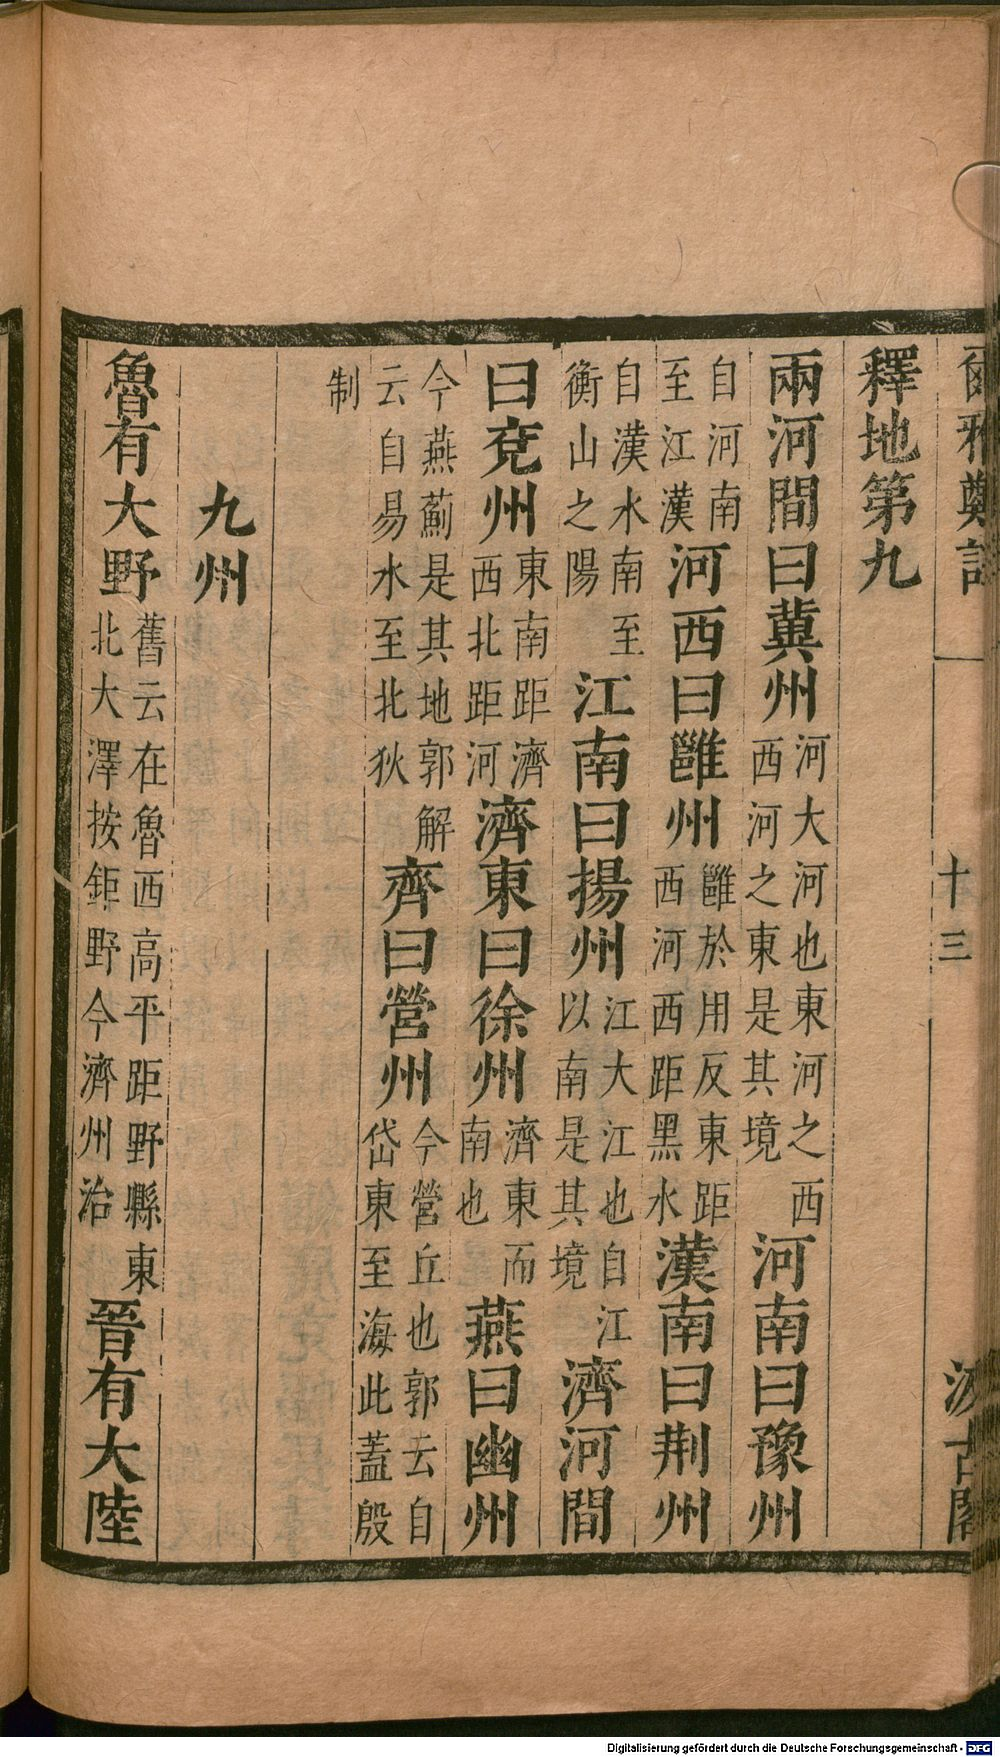 爾雅鄭註 十三 汲古閣
釋地第九
兩河間曰冀州河大河也東河之西西河之東是其境河南曰豫州
自河南至江漢河西曰雝州雝於用反東距西河西距黑水漢南曰荆州
自漢水南至衡山之陽江南曰揚州江大江也自江以南是其境濟河間
曰兖州東南距濟西北距河濟東曰徐州濟東而南也燕曰幽州
今燕薊是其地郭解云自易水至北狄齊曰營州今營丘也郭云自岱東至海此蓋殷
制
九州
魯有大野舊云在魯西高平距野縣東北大澤按鉅野今濟州治晉有大陸
Digitalisierung gefördert durch die Deutsche Forschungsgemeinschaft - DFG